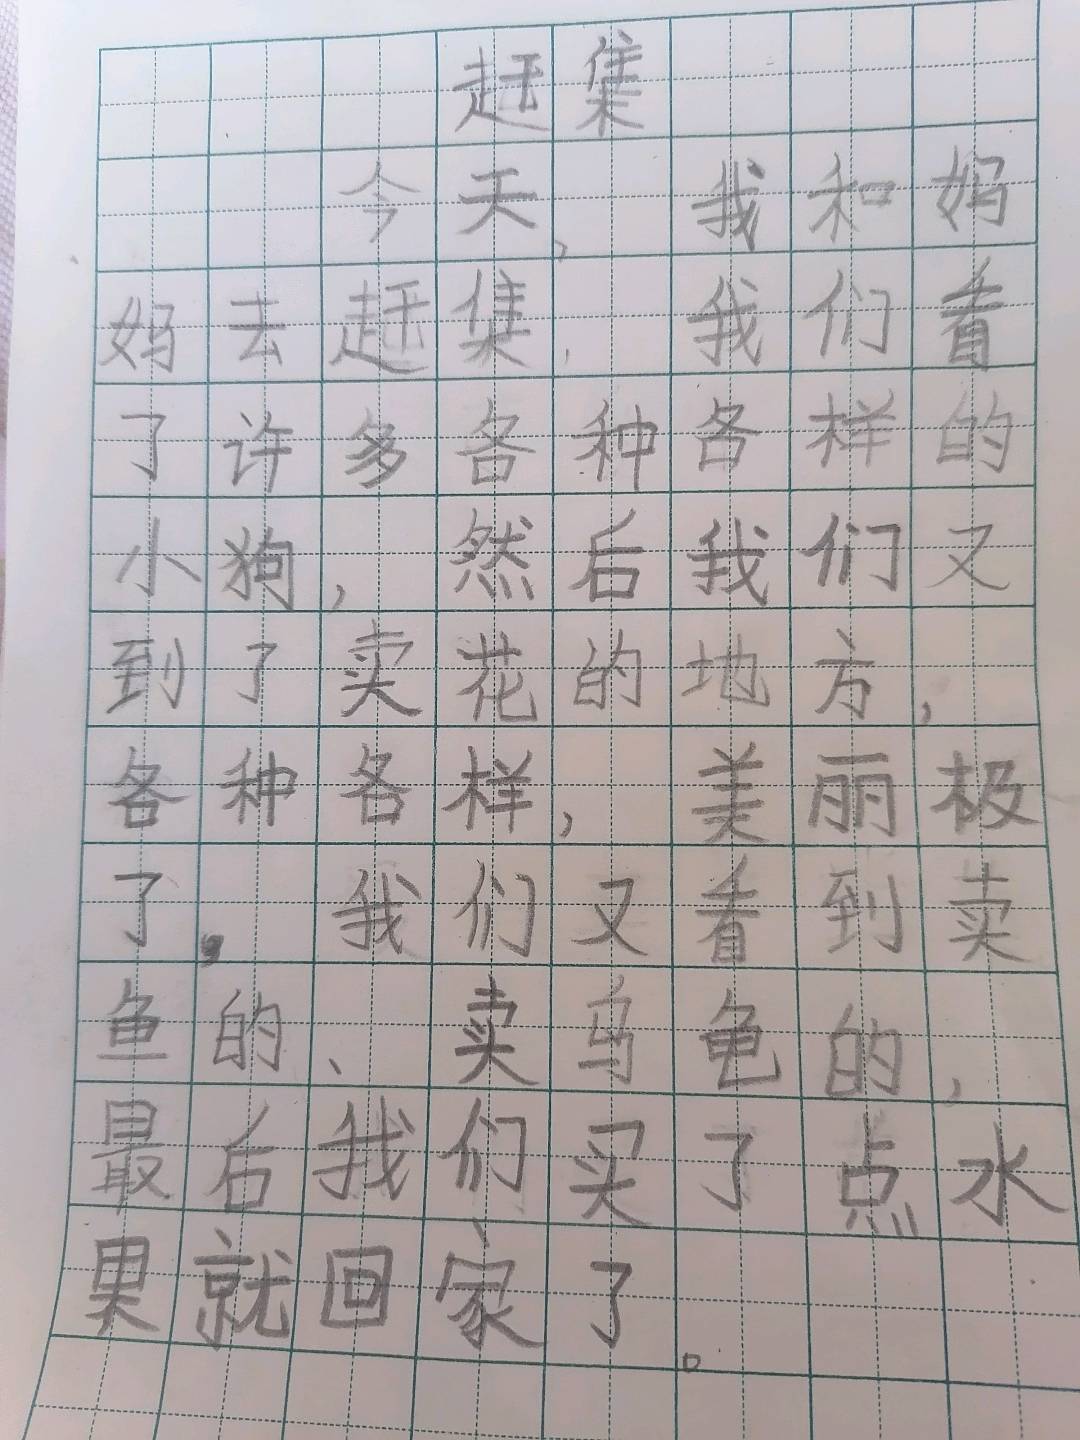 赶集
今天，我和妈
妈去赶集，我们看
了许多各种各样的
小狗，然后我们又
到了卖花的地方，
各种各样，美丽极
了，我们又看到卖
鱼的、卖乌龟的，
最后我们买了点水
果就回家了。